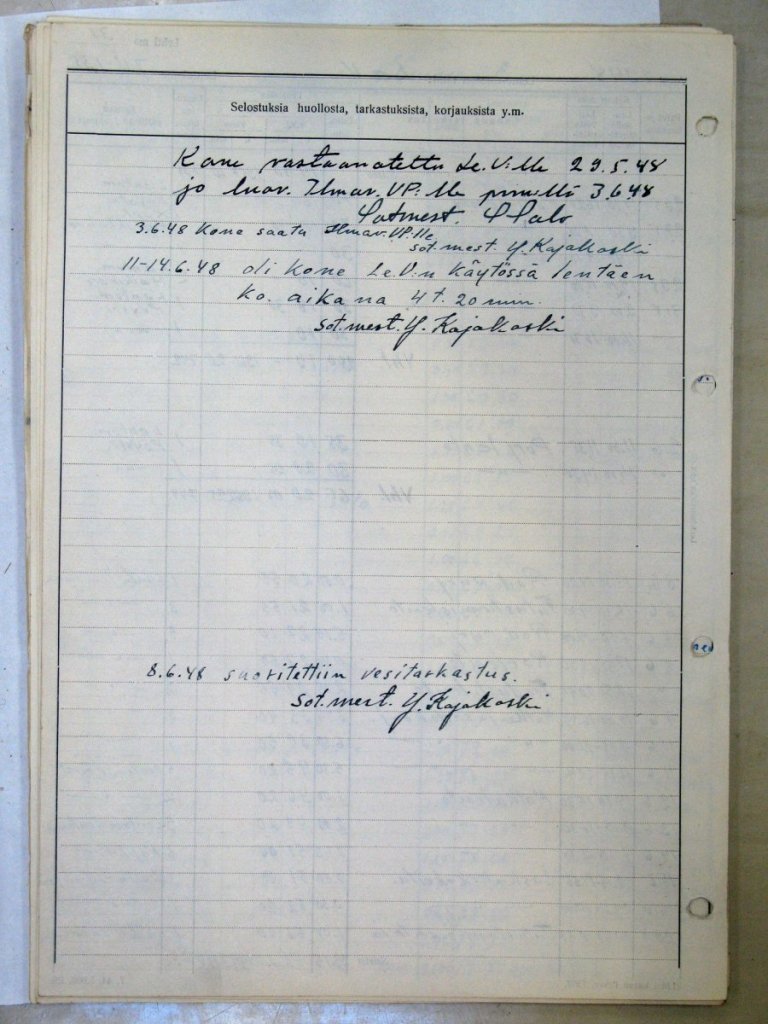 Selostuksia huollosta, tarkastuksista, korjauksista y.m.
Kone vastaanotettu Le.V:lle 29.5.48
ja luov. Ilmav.VP:lle 3.6.48
Sotmest.
3.6.48 Kone saatu Ilmav.VP:lle
sot.mest. Y. Kajakoski
11-14.6.48 oli kone Le.V:n käytössä lentäen
ko. aikana 4 t. 20 min.
sot.mest. Y. Kajakoski
8.6.48 suoritettiin vesitarkastus.
sot.mest. Y. Kajakoski